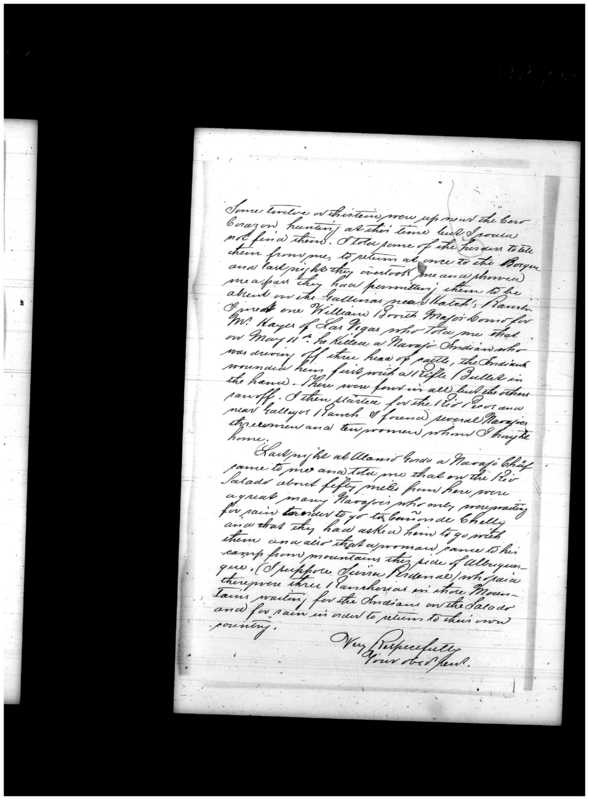 Some twelve or thirteen were up near the Cero
Corazon hunting at this time but I could
not find them. I told some of the herders to tell
them from me, to return at once to the Bosque
and last night they overtook me and showed
me a pass they had permitting them to be
absent on the Gallinas near Hatch's Ranch.
I met one William Major Domo for
Mr. Hayes of Las Vegas who told me that
on May 11th he killed a Navajo Indian who
was driving off three head of cattle, the Indians
wounded him first with a Rifle Bullet in
the hand. There were four in all but the others
ran off. I then started for the Rio and
near Gallegos Ranch I found several Navajoes
three men and ten women whom I brought
home.
Last night at Alamo Gordo a Navajo Chief
came to me and told me that on the Rio
Salado about fifty miles from here were
a great many Navajoes who only were waiting
for rain in order to go to Cañon de Chelly
and that they had asked him to go with
them and also that a woman came to his
camp from mountains this side of Albuquer-
que. (I suppose Sierra ) who said
there were three Rancherias in those Moun-
tains waiting for the Indians on the Salado
and for rain in order to return to their own
country.
Very Respectfully
Your obdt servt.